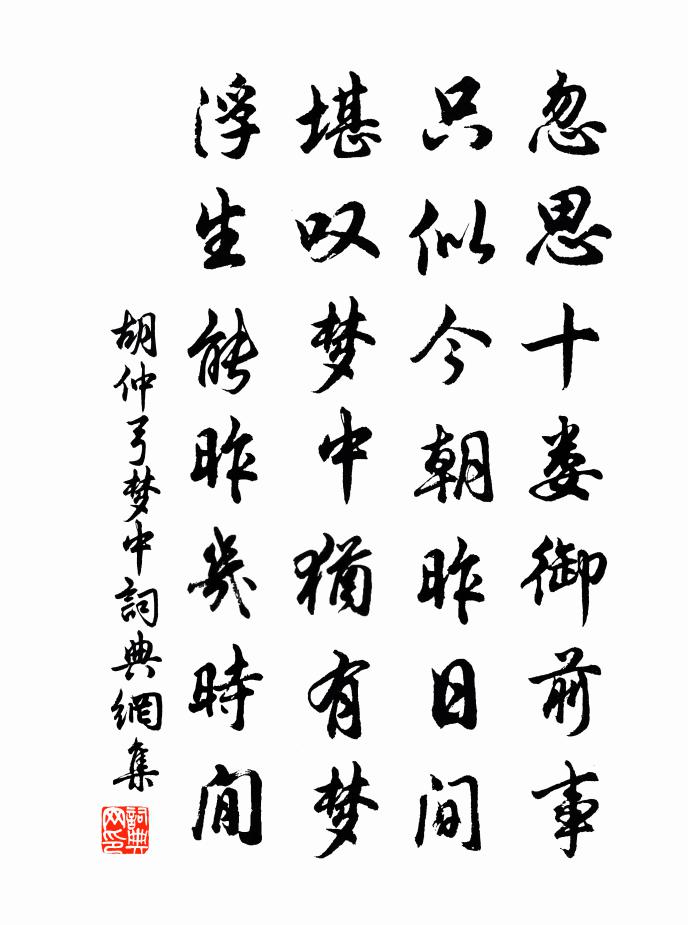 忽思十娄御前事
只似今朝昨日间
堪叹梦中猶有梦
浮生能昨幾時閒
胡仲弓梦中詞典網集
詞典网印